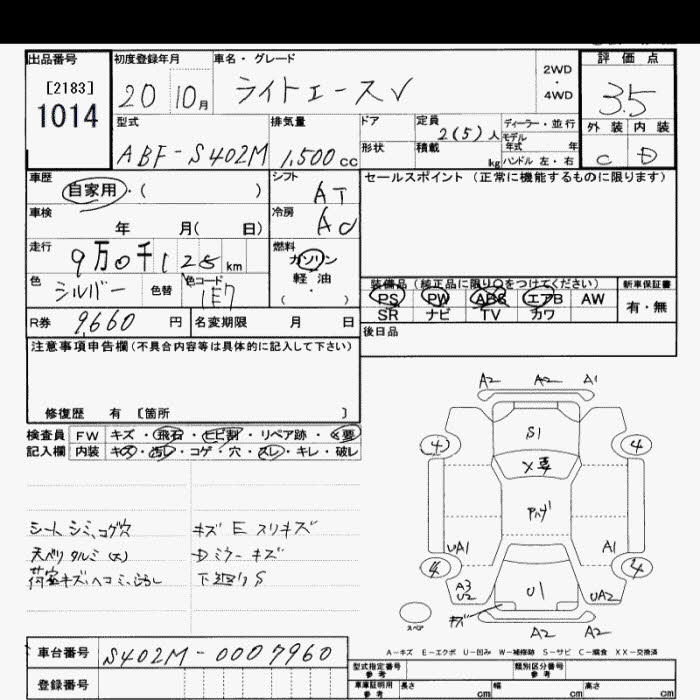 出品番号 初度登録年月 車名・グレード 2WD・4WD 評価点
[2183]
1014 20 10月 ライトエースV 3.5
型式 排気量 ドア 定員 2(5)人 ディーラー・並行 外装 内装
モデル年式 年
ABF-S402M 1,500cc 形状 積載 kg ハンドル 左・右 C D
車歴 シフト セールスポイント(正常に機能するものに限ります)
自家用・( ) AT
車検 冷房
年 月( 日)
走行 9万0千 km 燃料 ガソリン
軽油
・
( )
色 シルバー 色替 色コード 1E7
装備品(純正品に限り○をつけてください) 新車保証書
PS PW ABS エアB AW 有・無
SR ナビ TV カワ
R券 9,660 円 名変期限 月 日
後日品
注意事項申告欄(不具合内容等は具体的に記入して下さい)
修復歴 有 〔箇所 〕
検査員 FW キズ・飛石・ヒビ割・リペア跡・×要
記入欄 内装 キズ・汚レ・コゲ・穴・スレ・キレ・破レ
シート シミ、コゲ穴 キズ E スリキズ
天ベリ タルミ(大) Dミラーキズ
荷室キズ、ヘコミ、 下廻りS
A2 A2 A1
S1
4 4
×要
UA1 A1
4 4
A3
U2 U1 UA2
キズ
スペア A2 A2
A-キズ E-エクボ U-凹み W-補修跡 S-サビ C-腐食 XX-交換済
車台番号 S402M-0007960
型式指定番号 参考 類別区分番号 参考
登録番号 車庫証明用 参考 長さ cm 幅 cm 高さ cm